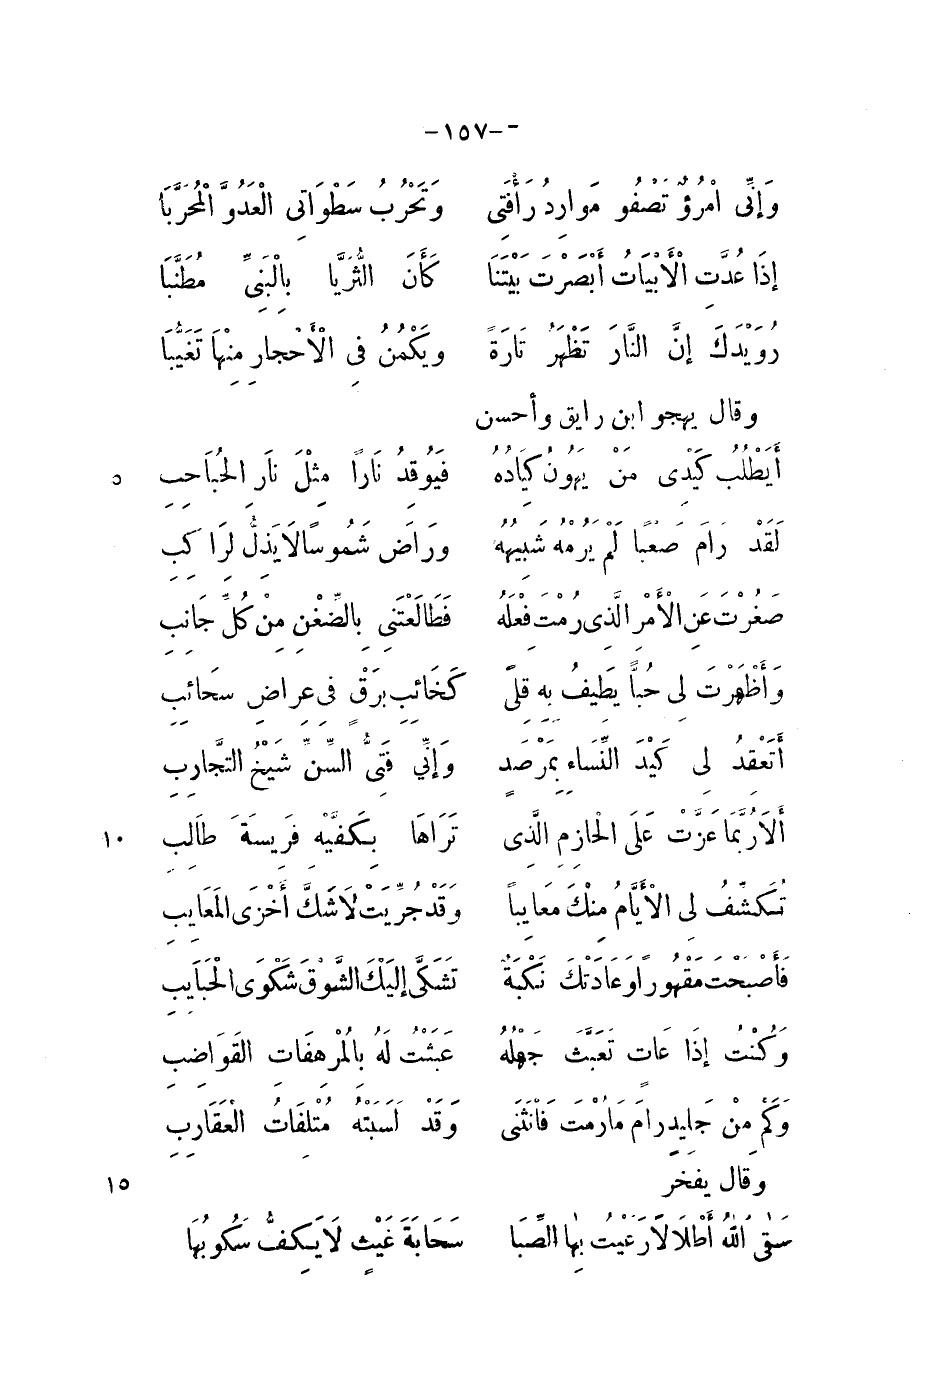 -١٥٧-
وَإِنِّى امْرُؤٌ تَصْفُو مَوَارِدُ رَأْفَتِى وَتَحْرُبُ سَطْوَاتِى الْعَدُوَّ الْمُحَرَّبَا
إِذَا عُدَّتِ الْأَبْيَاتُ أَبْصَرْتَ بَيْتَنَا كَأَنَّ الثُّرَيَّا بِالْبَنِىِّ مُطَنَّبَا
رُوَيْدَكَ إِنَّ النَّارَ تَظْهَرُ تَارَةً وَيَكْمُنُ فِى الْأَحْجَارِ مِنْهَا تَغَيُّبَا
وقال يهجو ابن رايق وأحسن
أَيَطْلُبُ كَيْدِى مَنْ يَهُونُ كِيَادُهُ فَيُوقِدُ نَارًا مِثْلَ نَارِ الْحُبَاحِبِ ٥
لَقَدْ رَامَ صَعْبًا لَمْ يَرُمْهُ شَبِيهُهُ وَرَاضَ شَمُوسًا لَا يَذِلُّ لِرَاكِبِ
صَغُرْتَ عَنِ الْأَمْرِ الَّذِى رُمْتَ فِعْلَهُ فَطَالَعْتَنِى بِالضِّغْنِ مِنْ كُلِّ جَانِبِ
وَأَظْهَرْتَ لِى حُبًّا يُطِيفُ بِهِ قِلًى كَخَائِبِ بَرْقٍ فِى عِرَاضِ سَحَائِبِ
أَتَعْقِدُ لِى كَيْدَ النِّسَاءِ بِمَرْصَدٍ وَإِنِّي فَتَىُّ السِّنِّ شَيْخُ التَّجَارِبِ
أَلَا رُبَّمَا عَزَّتْ عَلَى الْحَازِمِ الَّذِى تَرَاهَا بِكَفَّيْهِ فَرِيسَةَ طَالِبِ ١٠
تُكَشِّفُ لِى الْأَيَّامُ مِنْكَ مَعَايِبًا وَقَدْ جُرِّبَتْ لَا شَكَّ أَخْزَى الْمَعَايِبِ
فَأَصْبَحْتَ مَقْهُورًا وَعَادَتْكَ نَكْبَةٌ تَشَكَّى إِلَيْكَ الشَّوْقَ شَكْوَى الْحَبَايِبِ
وَكُنْتُ إِذَا عَاتٍ تَعَبَّثَ جَهْلُهُ عَبَثْتُ لَهُ بِالْمُرْهَفَاتِ الْقَوَاضِبِ
وَكَمْ مِنْ جَلِيدٍ رَامَ مَا رُمْتَ فَانْثَنَى وَقَدْ لَسَبَتْهُ مُتْلِفَاتُ الْعَقَارِبِ
وقال يفخر ١٥
سَقَى اللهُ أَطْلَالًا رَعَيْتُ بِهَا الصِّبَا سَحَابَةَ غَيْثٍ لَا يَكِفُّ سَكُوبُهَا